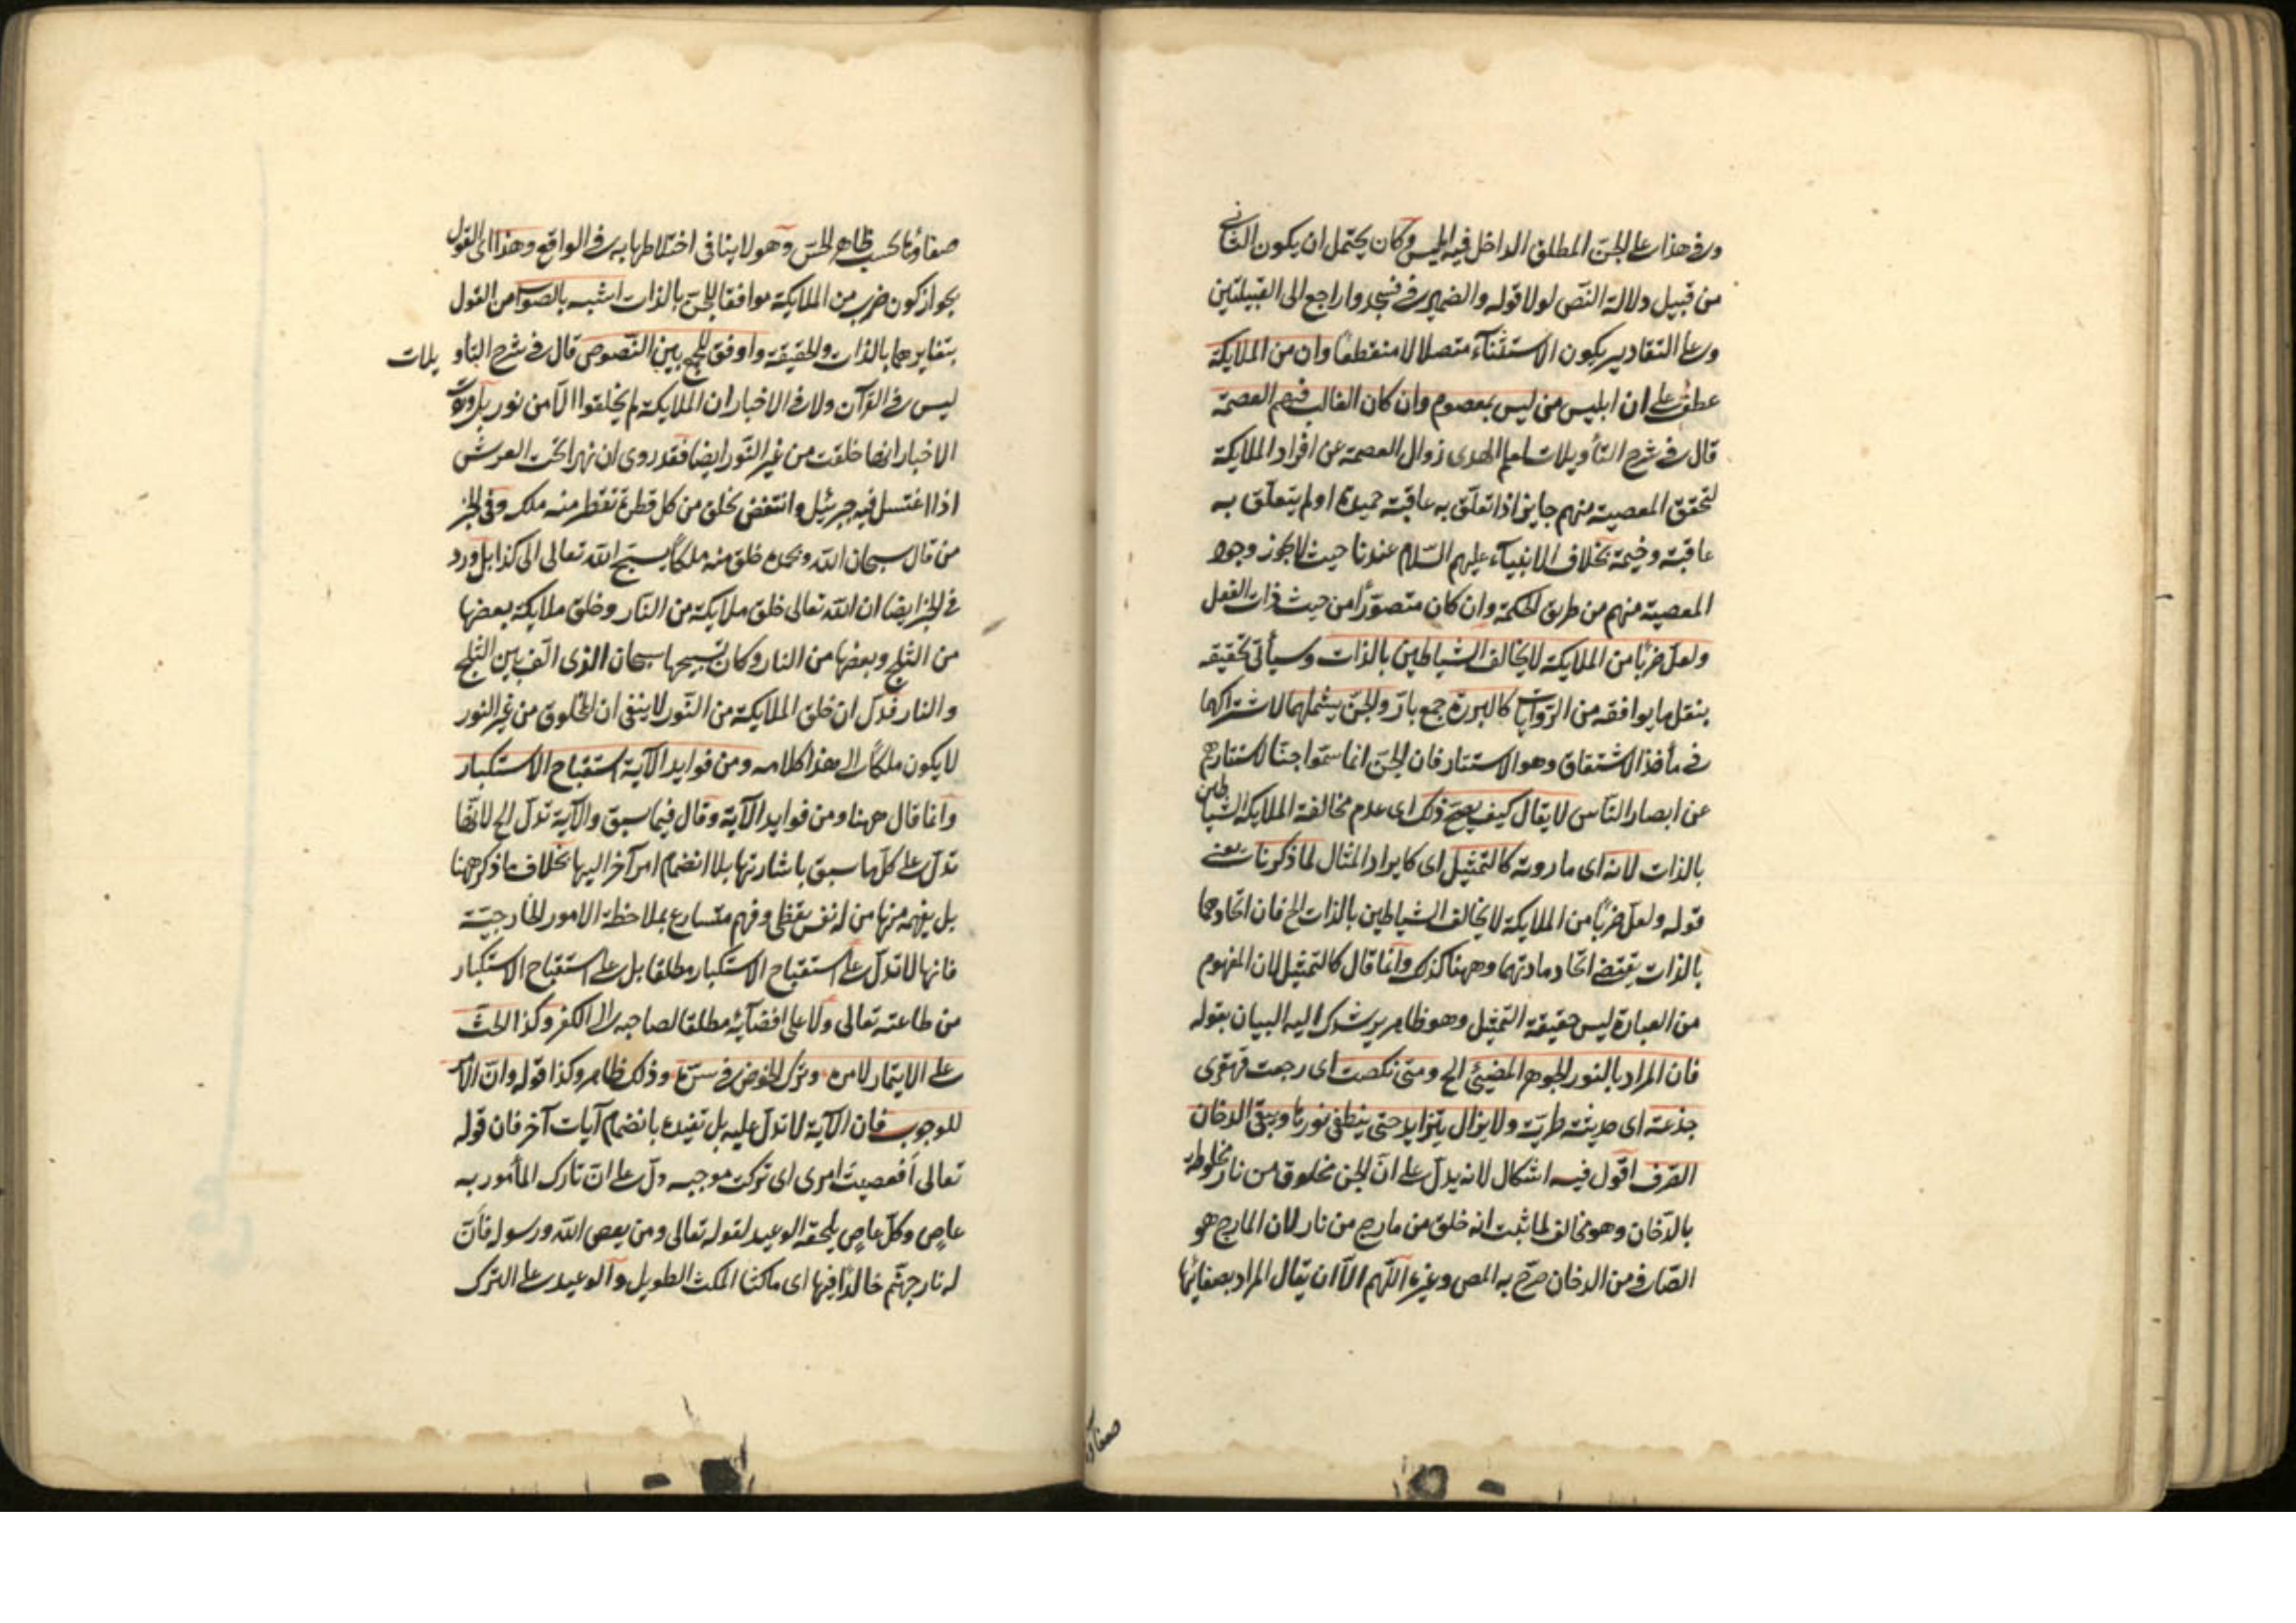 وفي هذا على الجن المطلق الداخل فيه ابليس وكان يحتمل ان يكون الثاني
من قبيل دلالة النص لولا قوله والضمير في فسجدوا راجع الى القبيلتين
وعلى التقادير يكون الاستثناء متصلا لا منقطعا وان من الملايكة
عطف على ان ابليس من ليس بمعصوم وان كان الغالب فيهم العصمة
قال في شرح التأويلات لعلم الهدى زوال العصمة عن افراد الملايكة
لتحقق المعصية منهم جايز اذا تعلق به عاقبة حميدة او لم يتعلق به
عاقبة وخيمة بخلاف الانبياء عليهم السلام عندنا حيث لا يجوز وجود
المعصية منهم من طريق الحكمة وان كان متصورا من حيث ذات الفعل
ولعل ضربا من الملايكة لا يخالف الشياطين بالذات وسيأتي تحقيقه
بنقل ما يوافقه من الروايات كالبررة جمع بار والجن يشملهما لاشتراكهما
في مأخذ الاشتقاق وهو الاستتار فان الجن انما سموا جنا لاستتارهم
عن ابصار الناس لا يقال كيف يصح ذلك اى عدم مخالفة الملايكة الشياطين
بالذات لانه اى ما روته كالتمثيل اى كايراد المثال لما ذكرنا يعني
قوله ولعل ضربا من الملايكة لا يخالف الشياطين بالذات الخ فان اتحادهما
بالذات يقتضي اتحاد مادتهما وههنا كذلك وانما قال كالتمثيل لان المفهوم
من العبارة ليس حقيقة التمثيل وهو ظاهر يرشدك اليه البيان بقوله
فان المراد بالنور الجوهر المضيئ الخ ومتى نكصت اى رجعت قهقرى
جذعة اى حديثة طرية ولا يزال يتزايد حتى ينطفي نورها ويبقى الدخان
الصرف اقول فيه اشكال لانه يدل على ان الجن مخلوق من نار مخلوطة
بالدخان وهو مخالف لما ثبت انه خلق من مارج من نار لان المارج هو
الصافي من الدخان صرح به المص وغيره اللهم الا ان يقال المراد بصفائها
صفاؤها
صفاؤها بحسب ظاهر الحس وهو لا ينافي اختلاطها به في الواقع وهذا اى القول
بجواز كون ضرب من الملايكة موافقا للجن بالذات اشبه بالصواب من القول
بتغايرهما بالذات والحقيقة واوفق للجمع بين النصوص قال في شرح التأويلات
ليس في القرآن ولا في الاخبار ان الملايكة لم يخلقوا الا من نور بل وردت
الاخبار انها خلقت من غير النور ايضا فقد روى ان نهرا تحت العرش
اذا اغتسل فيه جبرئيل وانتفض يخلق من كل قطرة تقطر منه ملك وفي الخبر
من قال سبحان الله وبحمده خلق منه ملكا يسبح الله تعالى الى كذا بل ورد
في الخبر ايضا ان الله تعالى خلق ملايكة من النار وخلق ملايكة بعضها
من الثلج وبعضها من النار وكان تسبيحها سبحان الذى الف بين الثلج
والنار فدل ان خلق الملايكة من النور لا ينفي ان المخلوق من غير النور
لا يكون ملكا الى هذا كلامه ومن فوايد الآية استقباح الاستكبار
وانما قال ههنا ومن فوايد الآية وقال فيما سبق والآية تدل الخ لانها
تدل على كل ما سبق باشارتها بلا انضمام امر آخر اليها بخلاف ما ذكر ههنا
بل يفهمه منها من له نفس يقظى وفهم متسارع بملاحظة الامور الخارجية
فانها لا تدل على استقباح الاستكبار مطلقا بل على استقباح الاستكبار
من طاعته تعالى ولا على افضائه مطلقا لصاحبه الى الكفر وكذا الحث
على الايتمار لامره وترك الخوض في سره وذلك ظاهر وكذا قوله وان الامر
للوجوب فان الآية لا تدل عليه بل تفيده بانضمام آيات آخر فان قوله
تعالى أفعصيت امرى اى تركت موجبه دل على ان تارك المأمور به
عاص وكل عاص يلحقه الوعيد لقوله تعالى ومن يعص الله ورسوله فان
له نار جهنم خالدا فيها اى ماكثا المكث الطويل والوعيد على الترك